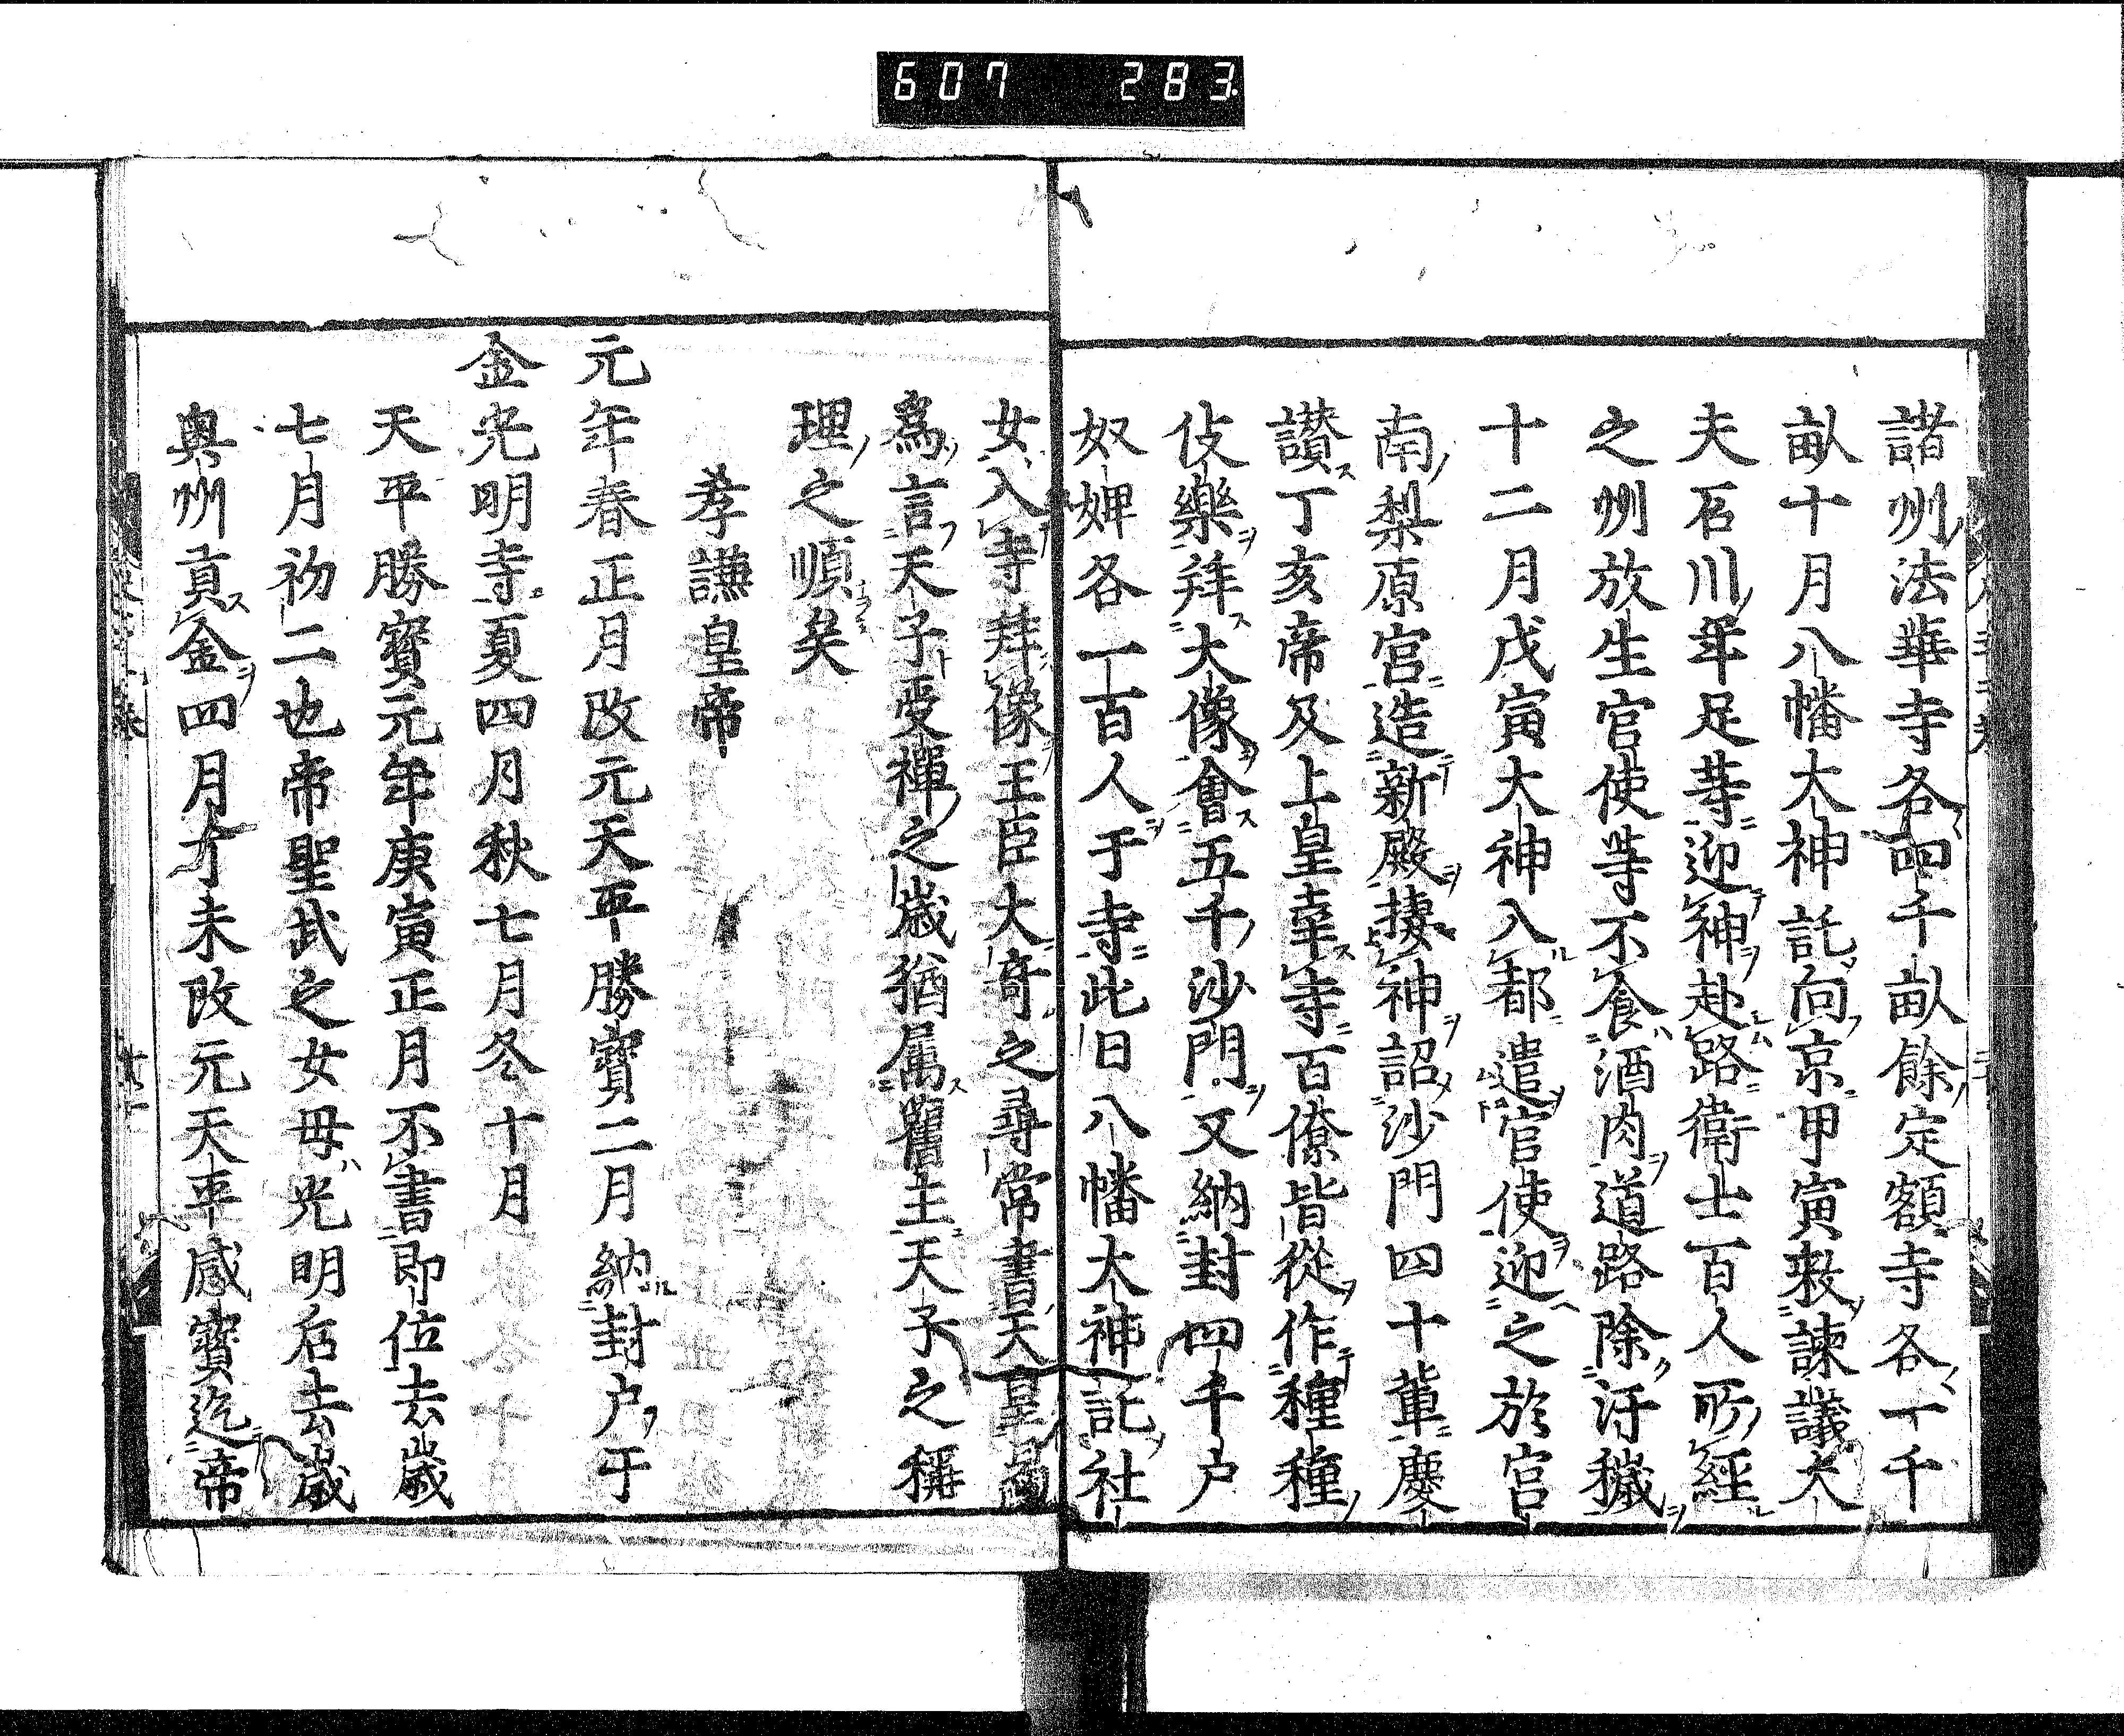 607 283
諸州法華寺各四千畝餘定額寺各一千
畝十月八幡大神託向京甲寅敕諫議大
夫石川年足等迎神赴路衛士百人所經
之州放生官使等不食酒肉道路除汙穢
十二月戊寅大神入都遣官使迎之於宮
南梨原宮造新殿捿神詔沙門四十輩慶
讃丁亥帝及上皇幸寺百僚皆從作種種
伎樂拜大像會五千沙門又納封四千户
奴婢各一百人于寺此日八幡大神託社
女入寺拜像王臣大奇之尋常書天皇
爲言天子受禪之歲猶属舊主天子之稱
理之順矣
孝謙皇帝
元年春正月改元天平勝寶二月納封户于
金光明寺夏四月秋七月冬十月
天平勝寶元年庚寅正月不書即位去歲
七月初二也帝聖武之女母光明后去歲
奥州貢金四月才未改元天平感寶迄帝